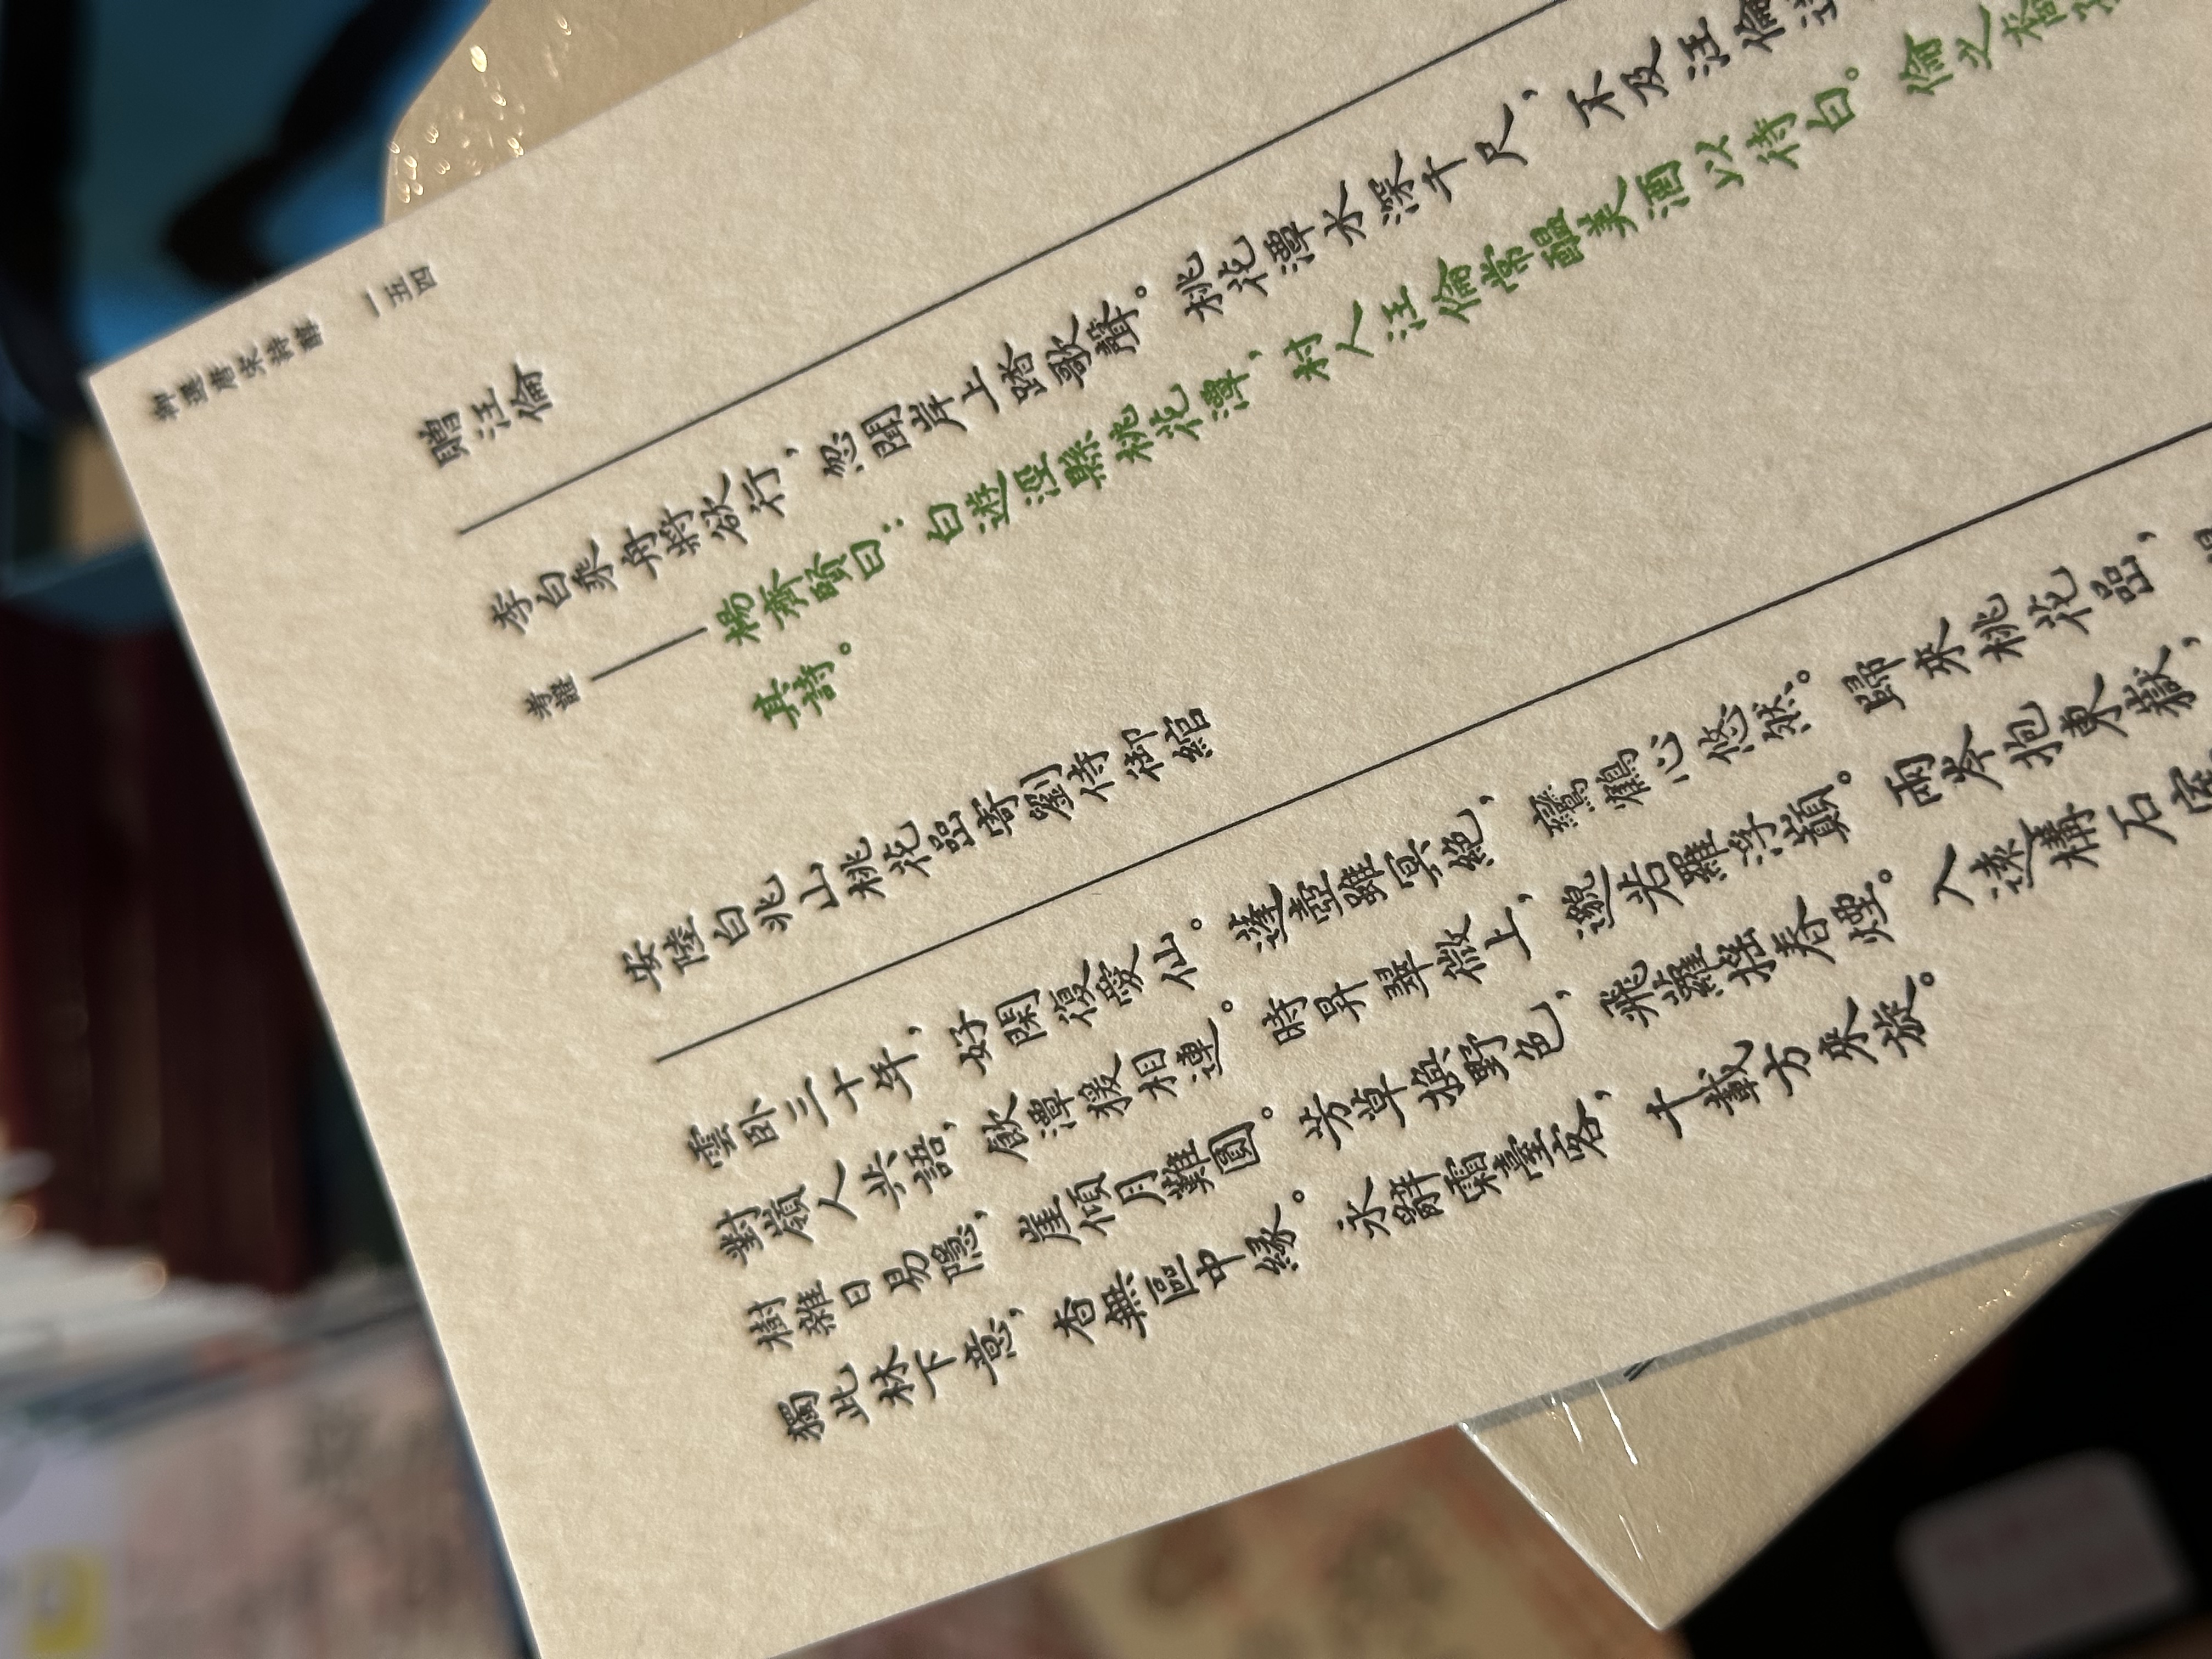 御選唐宋詩醇 一五四
贈汪倫
李白乘舟將欲行，忽聞岸上踏歌聲。桃花潭水深千尺，不及汪倫送
考證 楊齊賢曰：白遊涇縣桃花潭，村人汪倫常醞美酒以待白。倫之裔孫
其詩。
安陸白兆山桃花巖寄劉侍御綰
雲卧三十年，好閑復愛仙。蓬壺雖冥絶，鸞鶴心悠然。歸來桃花巖，
對嶺人共語，飲潭猨相連。時昇翠微上，邈若羅浮巔。兩岑抱東嶽，
樹雜日易隱，崖傾月難圓。芳草換野色，飛蘿摇春煙。入遠構石室
獨此林下意，杳無區中緣。永辭霜臺客，千載方來旋。